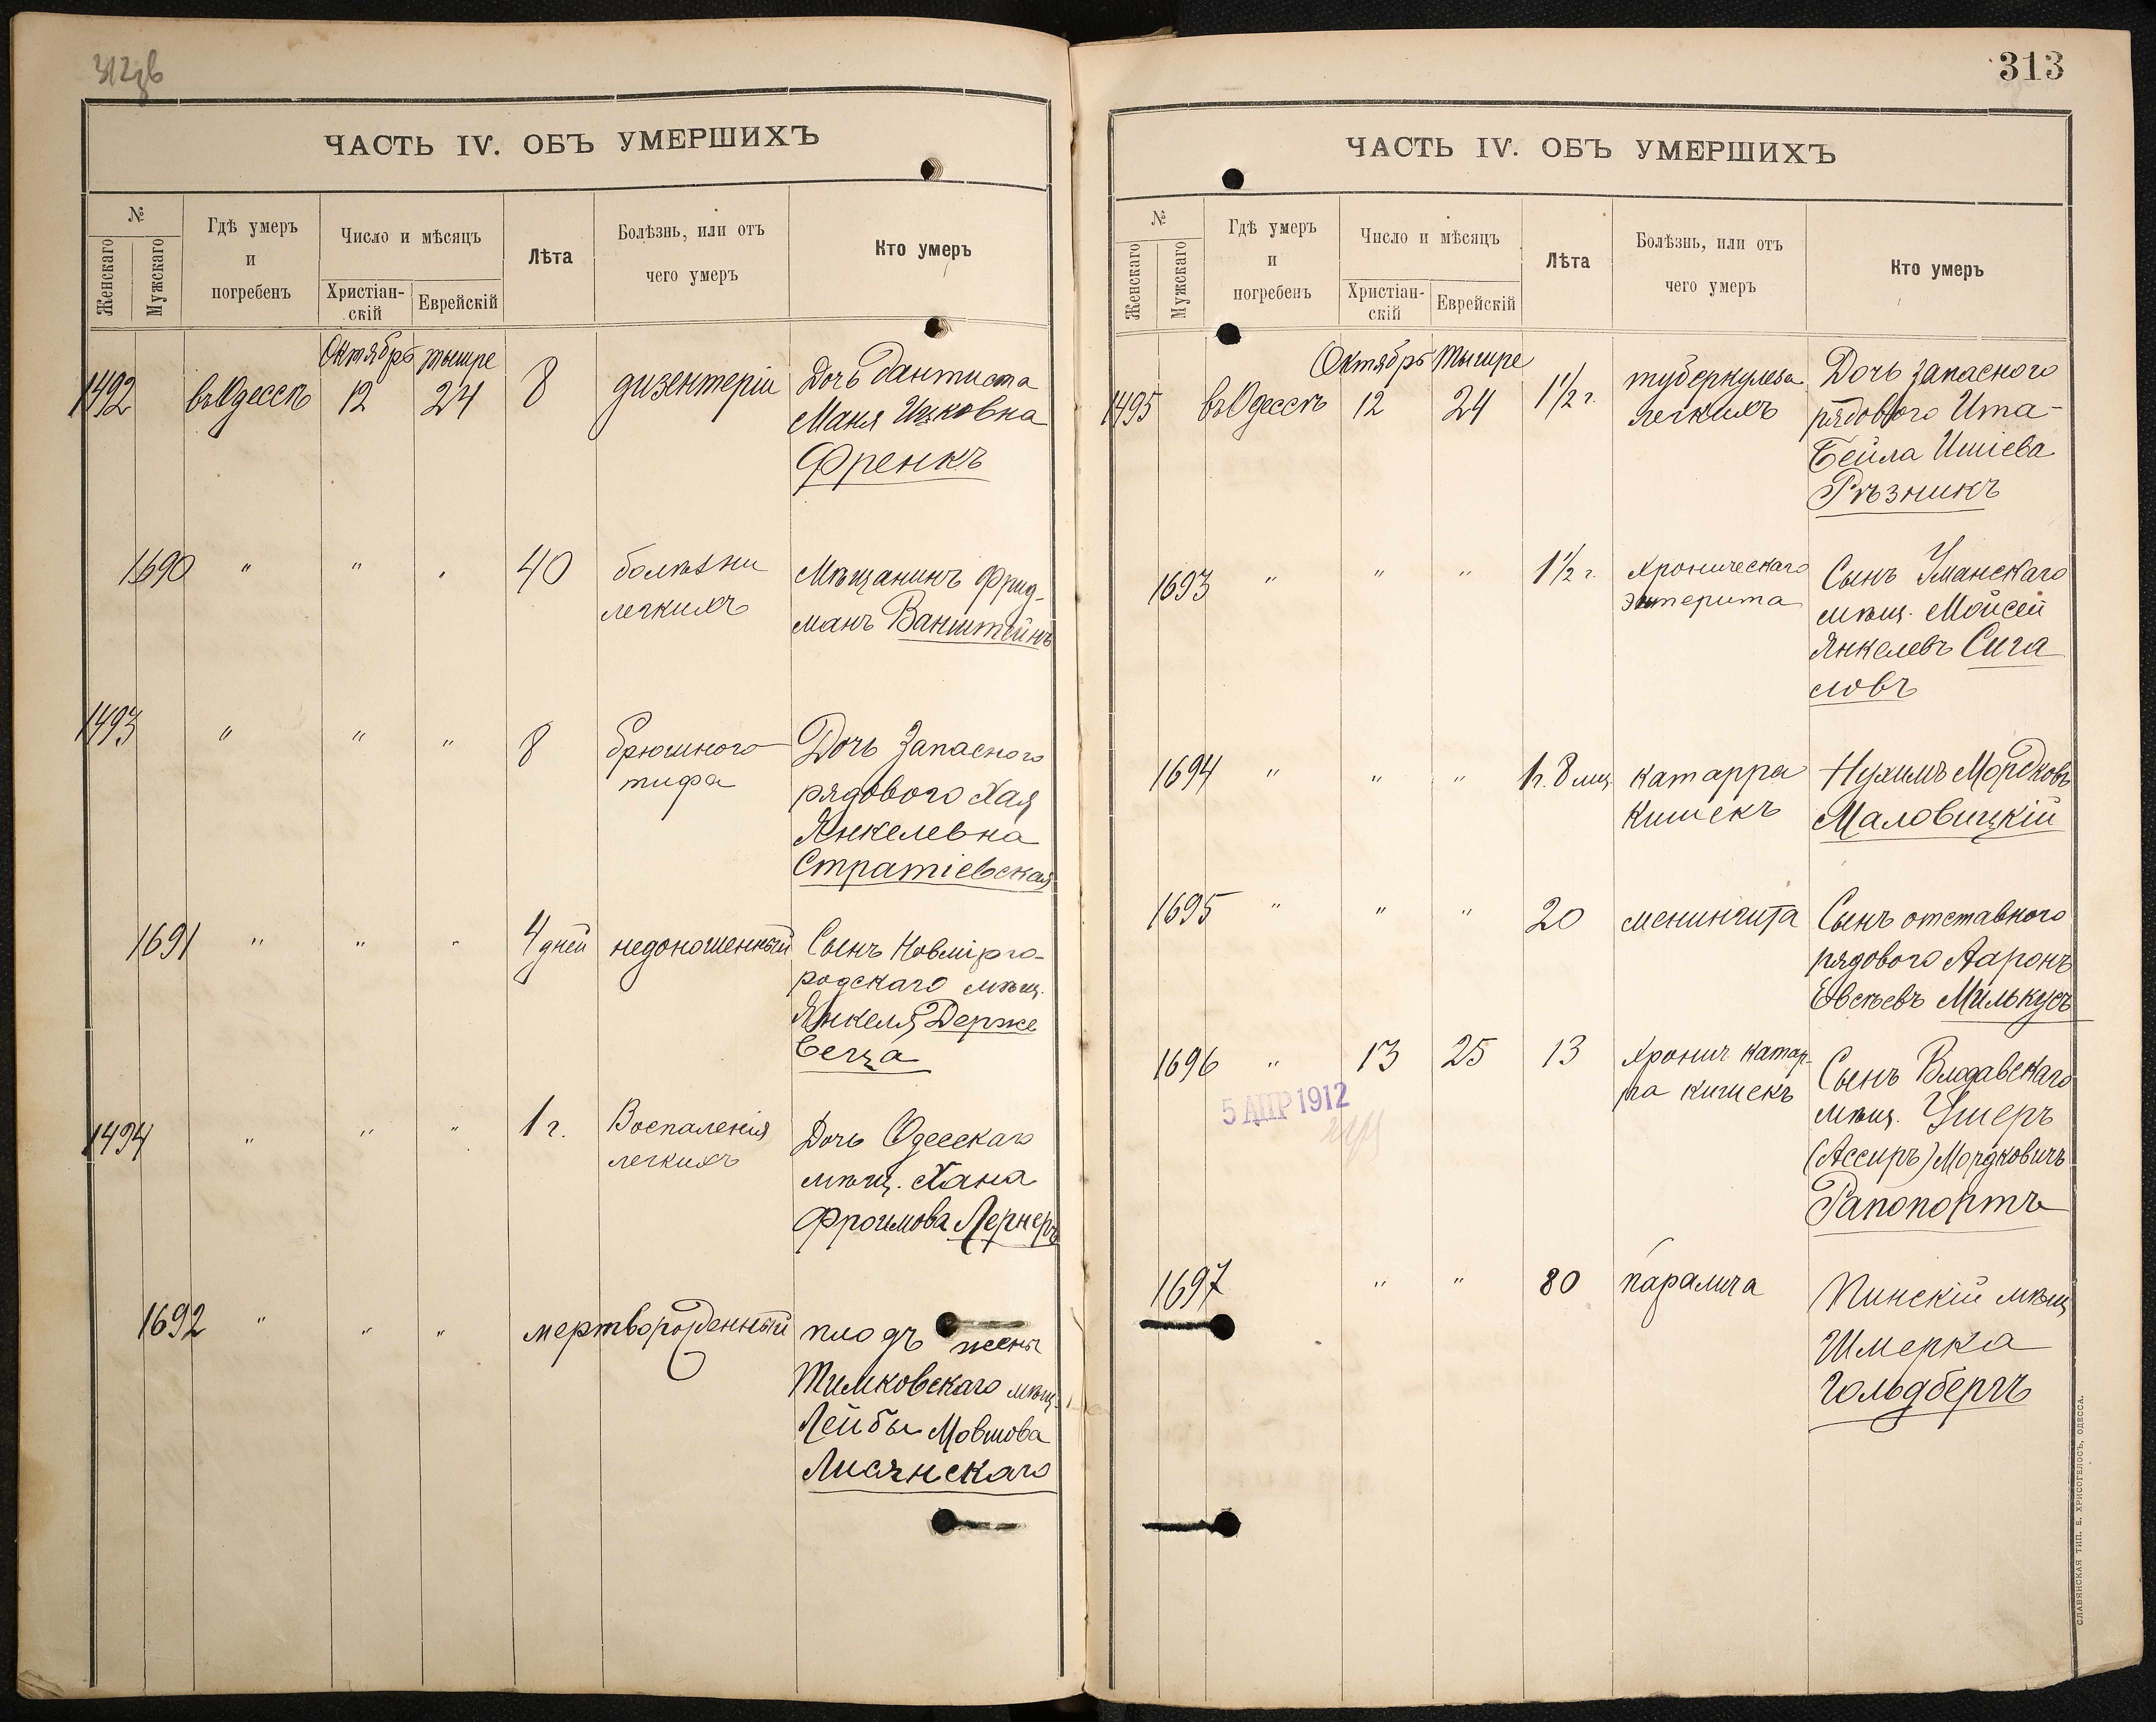 312об
ЧАСТЬ IV. ОБЪ УМЕРШИХЪ
№
Женскаго
Мужскаго
Гдѣ умеръ
и
погребенъ
Число и мѣсяцъ
Христіан-
скій
Еврейскій
Лѣта
Болѣзнь, или отъ
чего умеръ
Кто умеръ
Октябрь Тишре
1492 въ Одессѣ 12 24 8 дизентеріи Дочь дантиста
Маня Ицковна
Френкъ
1690 " " " 40 болѣзни Мѣщанинъ Фрид-
легкихъ манъ Ванштейнъ
1493 " " " 8 брюшного Дочь Запасного
тифа рядового Хая
Янкелевна
Стратіевская
1691 " " " 4 дней недоношенный Сынъ Новмірго-
родскаго мѣщ.
Янкеля Держе
веца
1494 " " " 1 г. Воспаленія Дочь Одесскаго
легкихъ мѣщ. Хана
Фроимова Лернеръ
1692 " " " мертворожденный плодъ жены
Тимковскаго мѣщ.
Лейбы Мовшова
Лисянскаго
313
ЧАСТЬ IV. ОБЪ УМЕРШИХЪ
№
Женскаго
Мужскаго
Гдѣ умеръ
и
погребенъ
Число и мѣсяцъ
Христіан-
скій
Еврейскій
Лѣта
Болѣзнь, или отъ
чего умеръ
Кто умеръ
Октябрь Тишре
1495 въ Одессѣ 12 24 1½ г. туберкулеза Дочь запасного
легкихъ рядового Ита-
Бейла Ишіева
Рѣзникъ
1693 " " " 1½ г. Хроническаго Сынъ Уманскаго
энтерита мѣщ. Мойсей
Янкелевъ Сига
ловъ
1694 " " " 1 г. 8 мц. катарра Нухимъ Мордковъ
кишекъ Маловицкій
1695 " " " 20 менингита Сынъ отставного
рядового Ааронъ
Евсѣевъ Милькусъ
1696 " 13 25 13 Хронич катар- Сынъ Влодавскаго
ра кишекъ мѣщ. Ушеръ
(Ассиръ) Мордковичъ
Рапопортъ
5 АПР 1912
1697 " " 80 паралича Пинскій мѣщ
Шмерка
Гольдбергъ
СЛАВЯНСКАЯ ТИП. Е. ХРИСОГЕЛОСЪ, ОДЕССА.